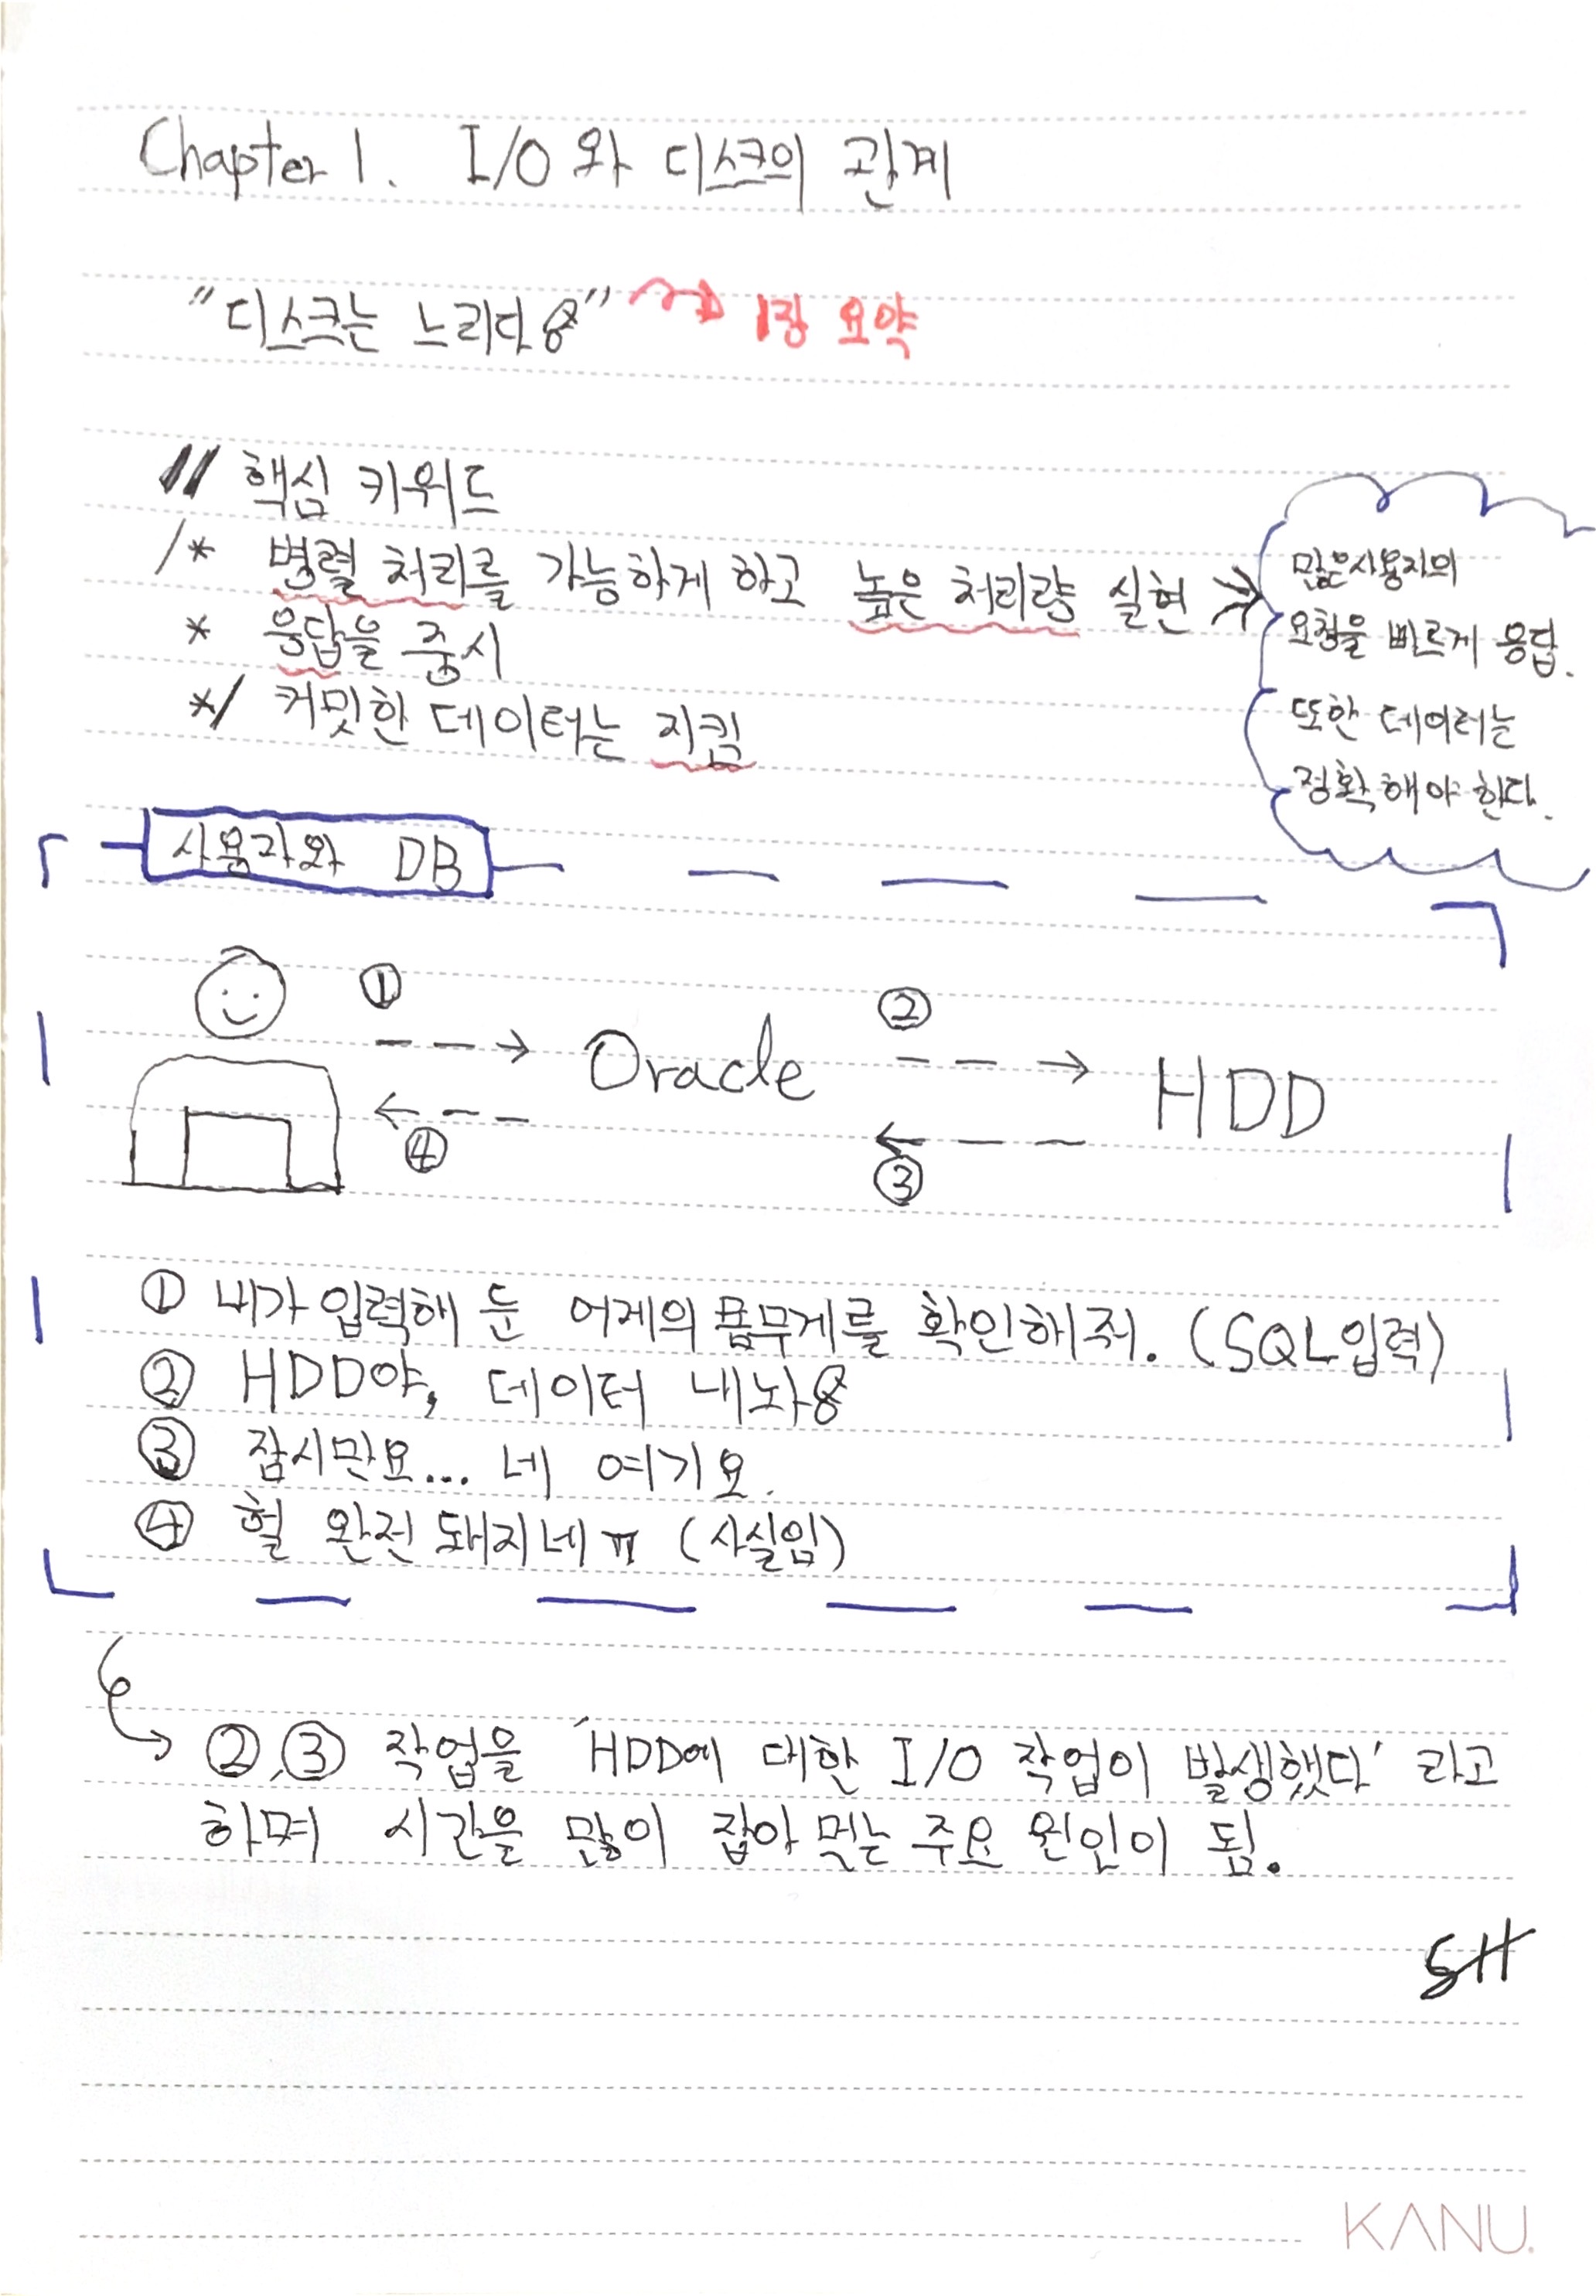 Chapter 1. I/O와 디스크의 관계
"디스크는 느리다용" 1장 요약
// 핵심 키워드
/* 병렬 처리를 가능하게 하고 높은 처리량 실현
* 응답을 중시
*/ 커밋한 데이터는 지킴
많은사용자의
요청을 빠르게 응답.
또한 데이터는
정확해야 한다.
사용자와 DB
① ②
Oracle HDD
④ ③
① 내가 입력해 둔 어제의 몸무게를 확인해줘. (SQL입력)
② HDD야, 데이터 내놔용
③ 잠시만요... 네 여기요.
④ 헐 완전 돼지네ㅠ (사실임)
②,③ 작업을 'HDD에 대한 I/O 작업이 발생했다' 라고
하며 시간을 많이 잡아 먹는 주요 원인이 됨.
SH
KANU.